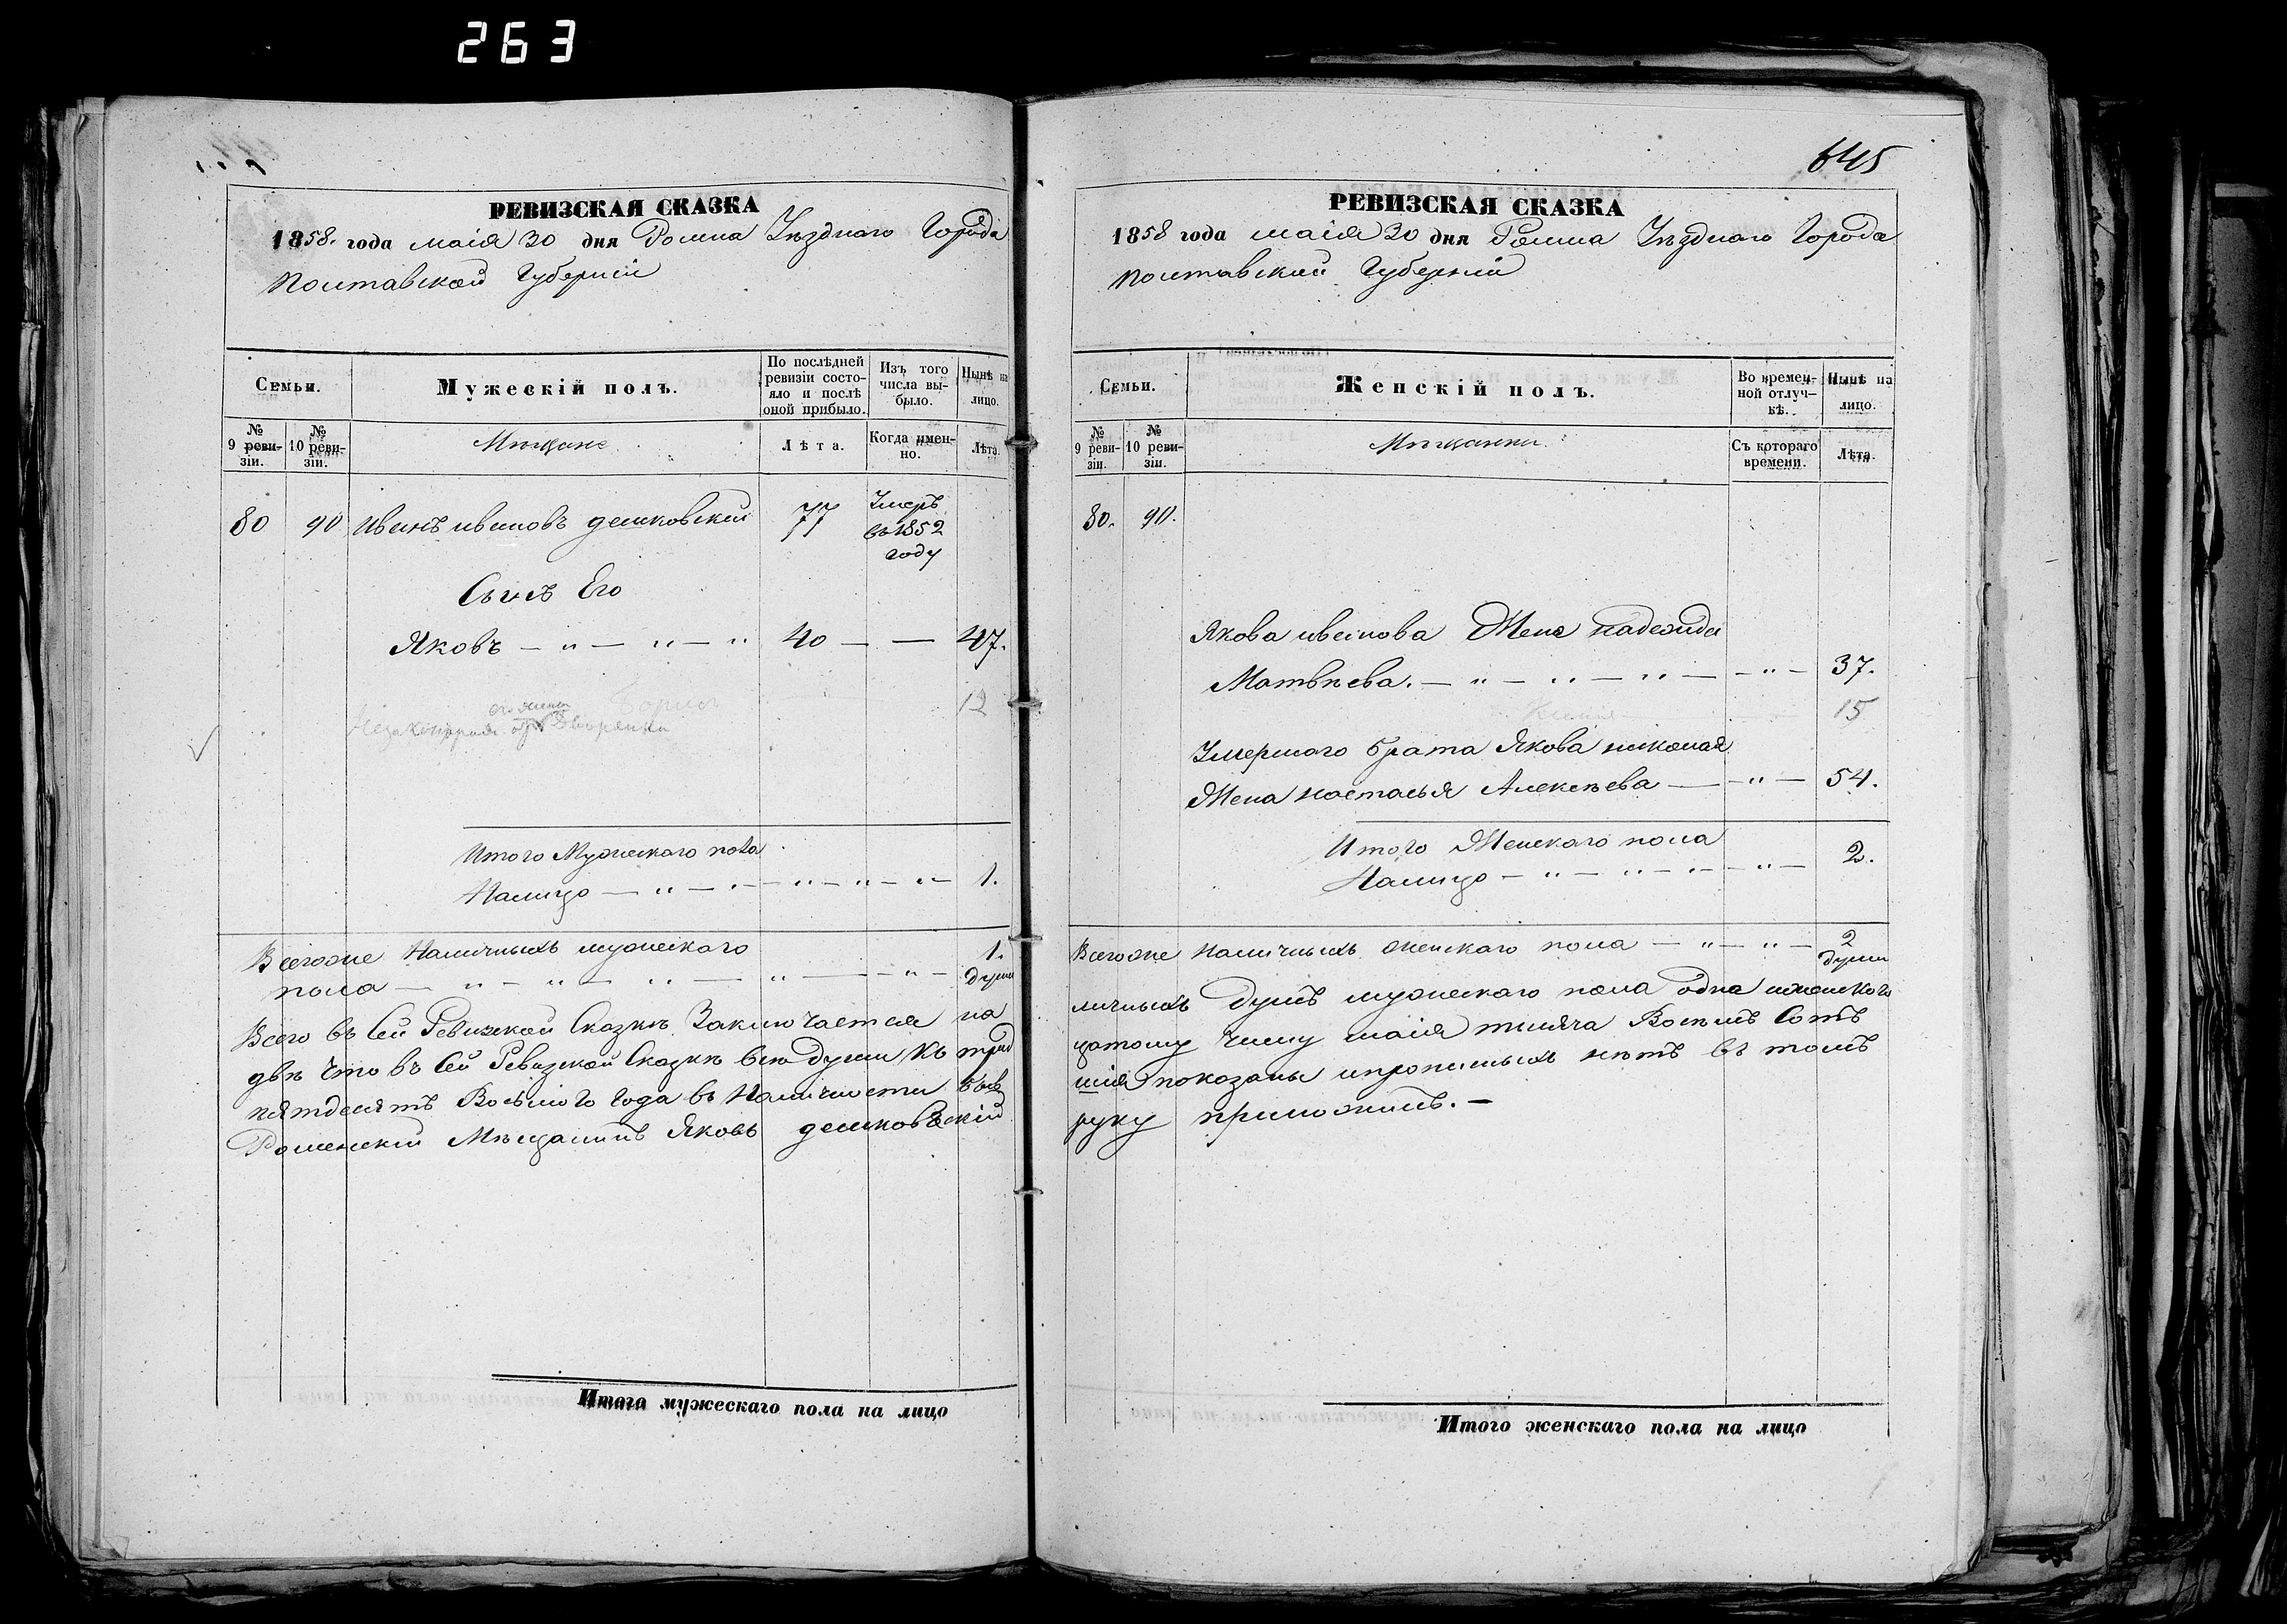 263
РЕВИЗСКАЯ СКАЗКА
1858. года маія 30 дня Ромна Уѣзднаго Города
Полтавской Губерніи
Семьи.
Мужескій полъ.
По послѣдней ревизіи состояло и послѣ оной прибыло.
Изъ того числа выбыло.
Нынѣ на лицо.
№ 9 ревизіи.
№ 10 ревизіи.
Мѣщане
Лѣта.
Когда именно.
Лѣта.
80 90 Иванъ ивановъ демковскій 77 Умеръ въ 1852 году
Сынъ Его
Яковъ — " — " — " 40 — — 47.
12
Итого Мужескаго пола
Налицо — " — " — " — " — " — 1.
Всегоже Наличныхъ мужескаго 1.
пола — " — " — " — " — " — душа
Всего въ Сей Ревизской Сказкѣ Заключается на
двѣ Что въ Сей Ревизской Сказкѣ всѣ души Къ трид
пятдесятъ Восьмого года въ Наличности быв
Роменскій Мѣщанинъ Яковъ демковскій
Итого мужескаго пола на лицо
645
РЕВИЗСКАЯ СКАЗКА
1858 года маія 30 дня Ромна Уѣзднаго Города
Полтавской Губерніи
Семьи.
Женскій полъ.
Во временной отлучкѣ.
Нынѣ на лицо.
№ 9 ревизіи.
№ 10 ревизіи.
Мѣщанки.
Съ котораго времени.
Лѣта.
80. 90.
Якова иванова Жена надежда
Матвѣева. — " — " — " — " — 37.
15
Умершого брата Якова николая
Жена настасья Алексѣева — " — 54.
Итого Женскаго пола
Налицо — " — " — " — " — 2.
Всегоже наличныхъ женскаго пола — " — " — 2 души
личныхъ Душъ мужескаго пола одна иженского
цатому Числу маія тысяча Восемь Сотъ
шія показаны ипрописныхъ нѣтъ въ томъ
руку приложилъ. —
Итого женскаго пола на лицо